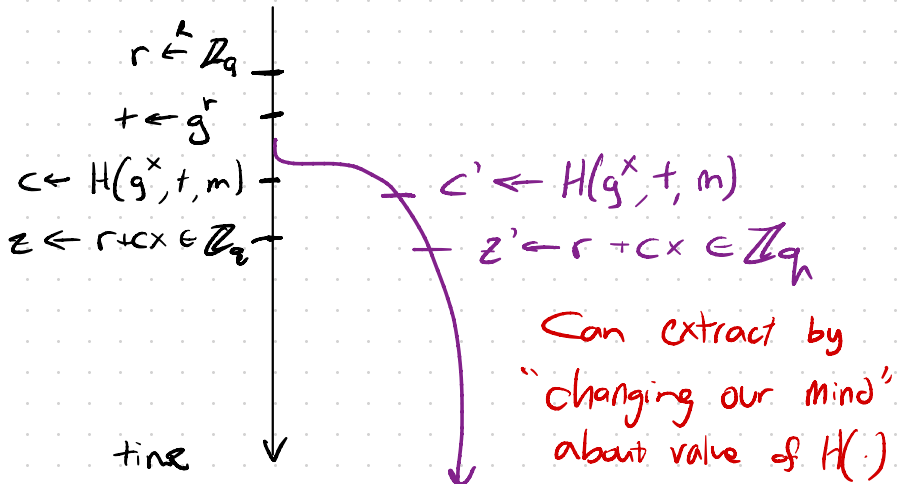 r ←ᴿ ℤq
t ← gʳ
c ← H(gˣ, t, m)
z ← r+cx ∈ ℤq
c' ← H(gˣ, t, m)
z' ← r + cx ∈ ℤq
Can extract by
"changing our mind"
about value of H(·)
time